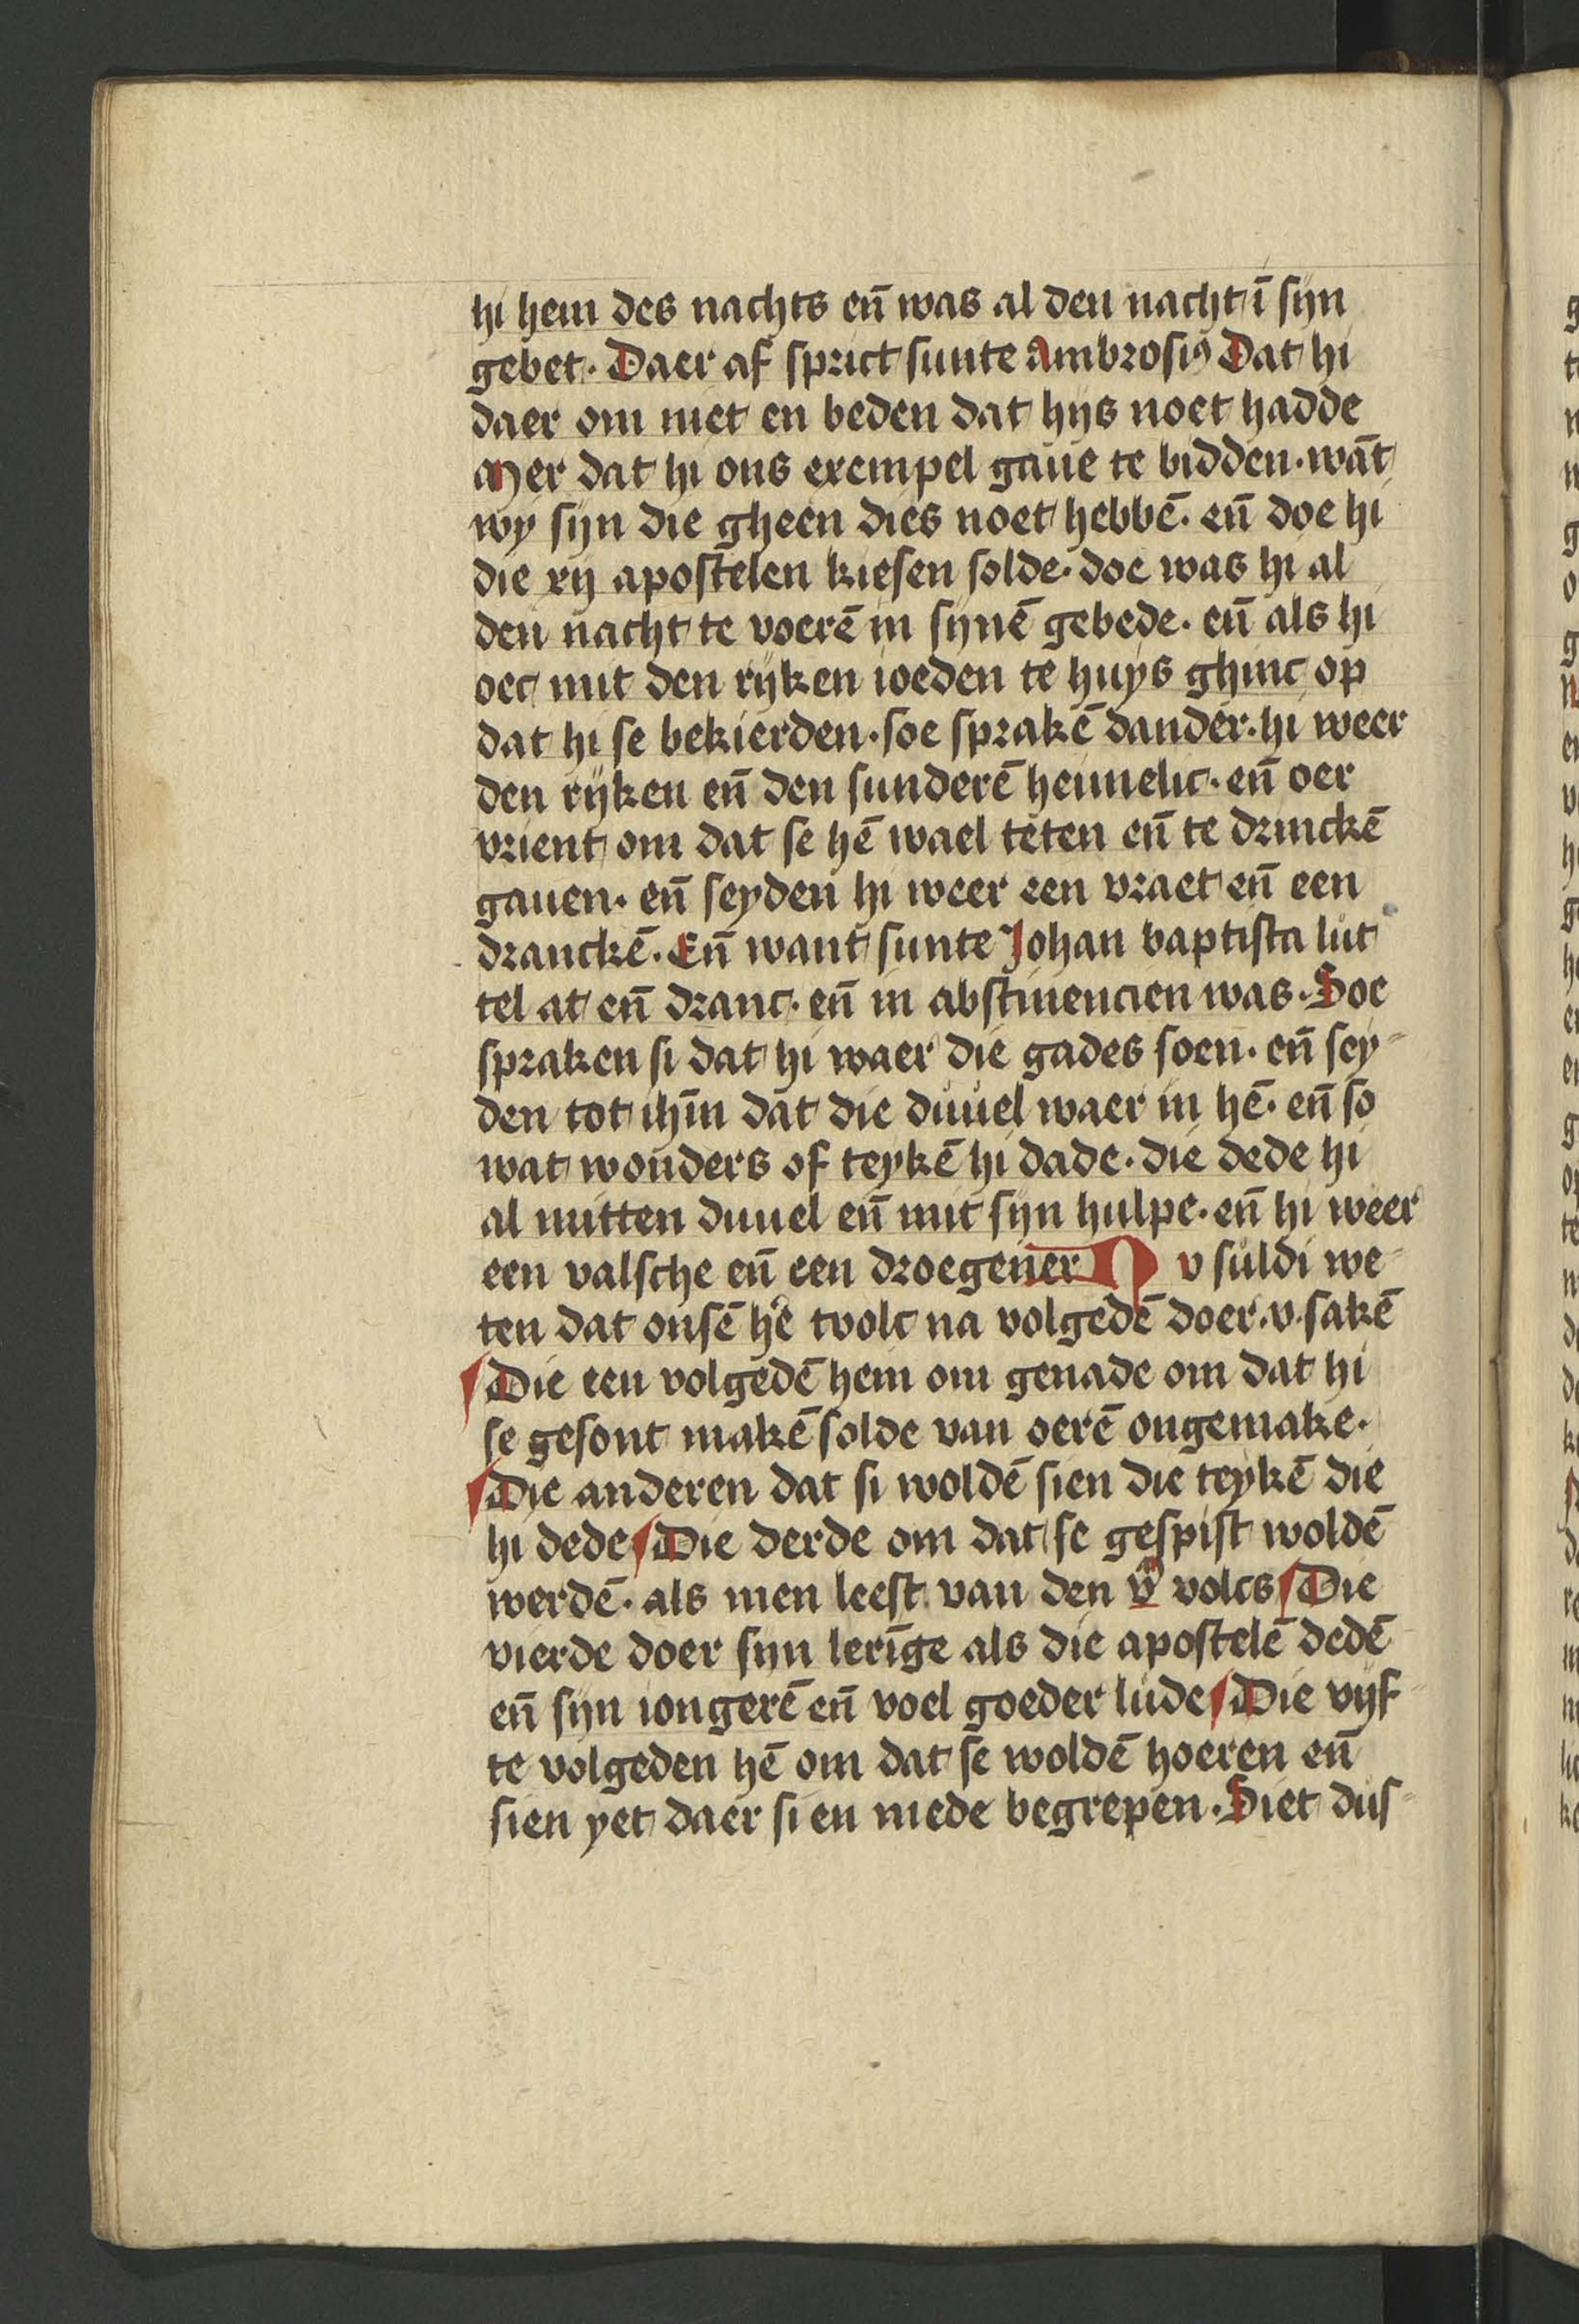 hi hem des nachts en̄ was al den nacht ī sijn
gebet. Daer af sprict sunte Ambrosiꝰ Dat hi
daer om niet en beden dat hijs noet hadde
Mer dat hi ons exempel gaue te bidden. wāt
wy sijn die gheen dies noet hebbē. en̄ doe hi
die xij apostelen kiesen solde. doe was hi al
den nacht te voerē in sijnē gebede. en̄ als hi
oec mit den rijken ioeden te huys ghinc op
dat hi se bekierden. soe sprakē dander. hi weer
den rijken en̄ den sunderē heimelic. en̄ oer
vrient om dat se hē wael teten en̄ te drinckē
gauen. en̄ seyden hi weer een vraet en̄ een
dranckē. En̄ want sunte Johan baptista lut
tel at en̄ dranc. en̄ in abstinencien was. Soe
spraken si dat hi waer die gades soen. en̄ sey-
den tot ihm̄ dat die duuel waer in hē. en̄ so
wat wonders of teykē hi dade. die dede hi
al mitten duuel en̄ mit sijn hulpe. en̄ hi weer
een valsche en̄ een droegener Nv suldi we-
ten dat onsē hē tvolc na volgedē doer .v. sakē
Die een volgedē hem om genade om dat hi
se gesont makē solde van oerē ongemake.
Die anderen dat si woldē sien die teykē die
hi dede Die derde om dat se gespist woldē
werdē. als men leest van den vͫ volcs Die
vierde doer sijn lerīge als die apostelē dedē
en̄ sijn iongerē en̄ voel goeder lude Die vijf-
te volgeden hē om dat se woldē hoeren en̄
sien yet daer si en mede begrepen. Siet dus-